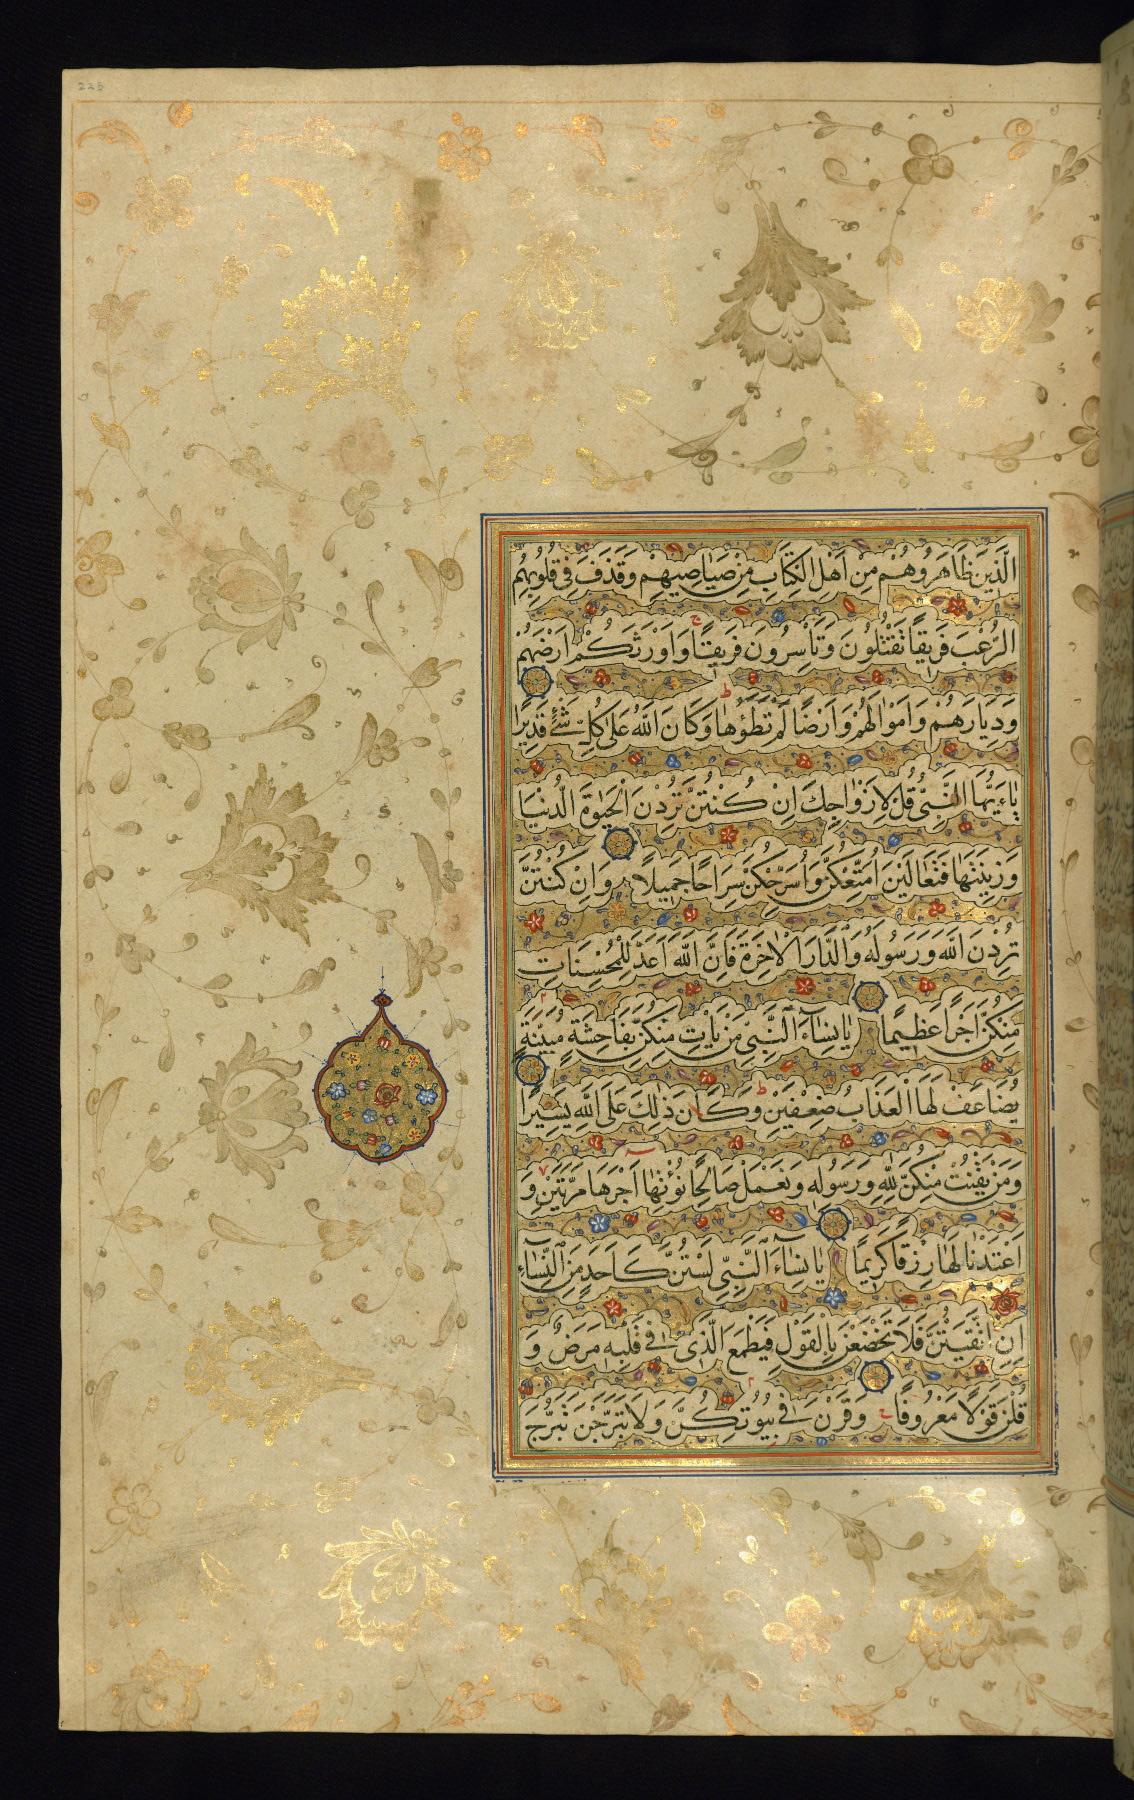 225
الَّذِينَ ظَاهَرُوهُمْ مِنْ اَهْلِ الْكِتَابِ مِنْ صَيَاصِيهِمْ وَقَذَفَ فِي قُلُوبِهِمُ
الرُّعْبَ فَرِيقًا تَقْتُلُونَ وَتَأْسِرُونَ فَرِيقًا ج وَاَوْرَثَكُمْ اَرْضَهُمْ
وَدِيَارَهُمْ وَاَمْوَالَهُمْ وَاَرْضًا لَمْ تَطَؤُهَا ط وَكَانَ اللّٰهُ عَلٰى كُلِّ شَيْءٍ قَدِيرًا
يَاءَيُّهَا النَّبِيُّ قُلْ لِاَزْوَاجِكَ اِنْ كُنْتُنَّ تُرِدْنَ الْحَيٰوةَ الدُّنْيَا
وَزِينَتَهَا فَتَعَالَيْنَ اُمَتِّعْكُنَّ وَاُسَرِّحْكُنَّ سَرَاحًا جَمِيلًا وَاِنْ كُنْتُنَّ
تُرِدْنَ اللّٰهَ وَرَسُولَهُ وَالدَّارَ الْاٰخِرَةَ فَاِنَّ اللّٰهَ اَعَدَّ لِلْمُحْسِنَاتِ
مِنْكُنَّ اَجْرًا عَظِيمًا يَا نِسَآءَ النَّبِيِّ مَنْ يَأْتِ مِنْكُنَّ بِفَاحِشَةٍ مُبَيِّنَةٍ
يُضَاعَفْ لَهَا الْعَذَابُ ضِعْفَيْنِ ط وَكَانَ ذٰلِكَ عَلَى اللّٰهِ يَسِيرًا
وَمَنْ يَقْنُتْ مِنْكُنَّ لِلّٰهِ وَرَسُولِهِ وَتَعْمَلْ صَالِحًا نُؤْتِهَا اَجْرَهَا مَرَّتَيْنِ وَ
اَعْتَدْنَا لَهَا رِزْقًا كَرِيمًا يَا نِسَآءَ النَّبِيِّ لَسْتُنَّ كَاَحَدٍ مِنَ النِّسَآءِ
اِنِ اتَّقَيْتُنَّ فَلَا تَخْضَعْنَ بِالْقَوْلِ فَيَطْمَعَ الَّذِي فِي قَلْبِهِ مَرَضٌ وَ
قُلْنَ قَوْلًا مَعْرُوفًا وَقَرْنَ فِي بُيُوتِكُنَّ وَلَا تَبَرَّجْنَ تَبَرُّجَ